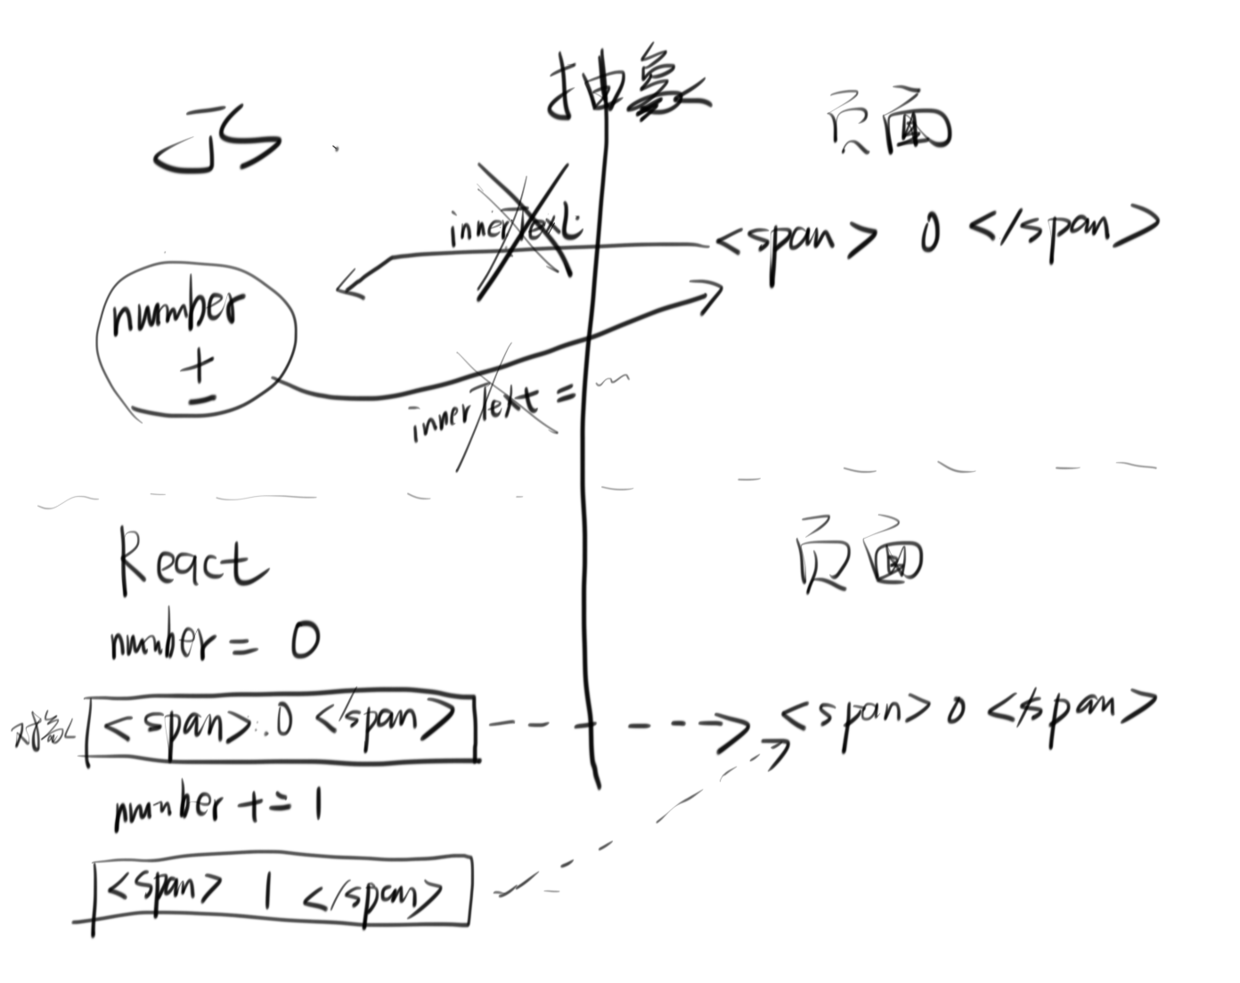 抽象
JS
页面
innerText
<span> 0 </span>
number
+
-
innerText =
React
页面
number = 0
对象
<span> 0 </span>
<span> 0 </span>
number += 1
<span> 1 </span>